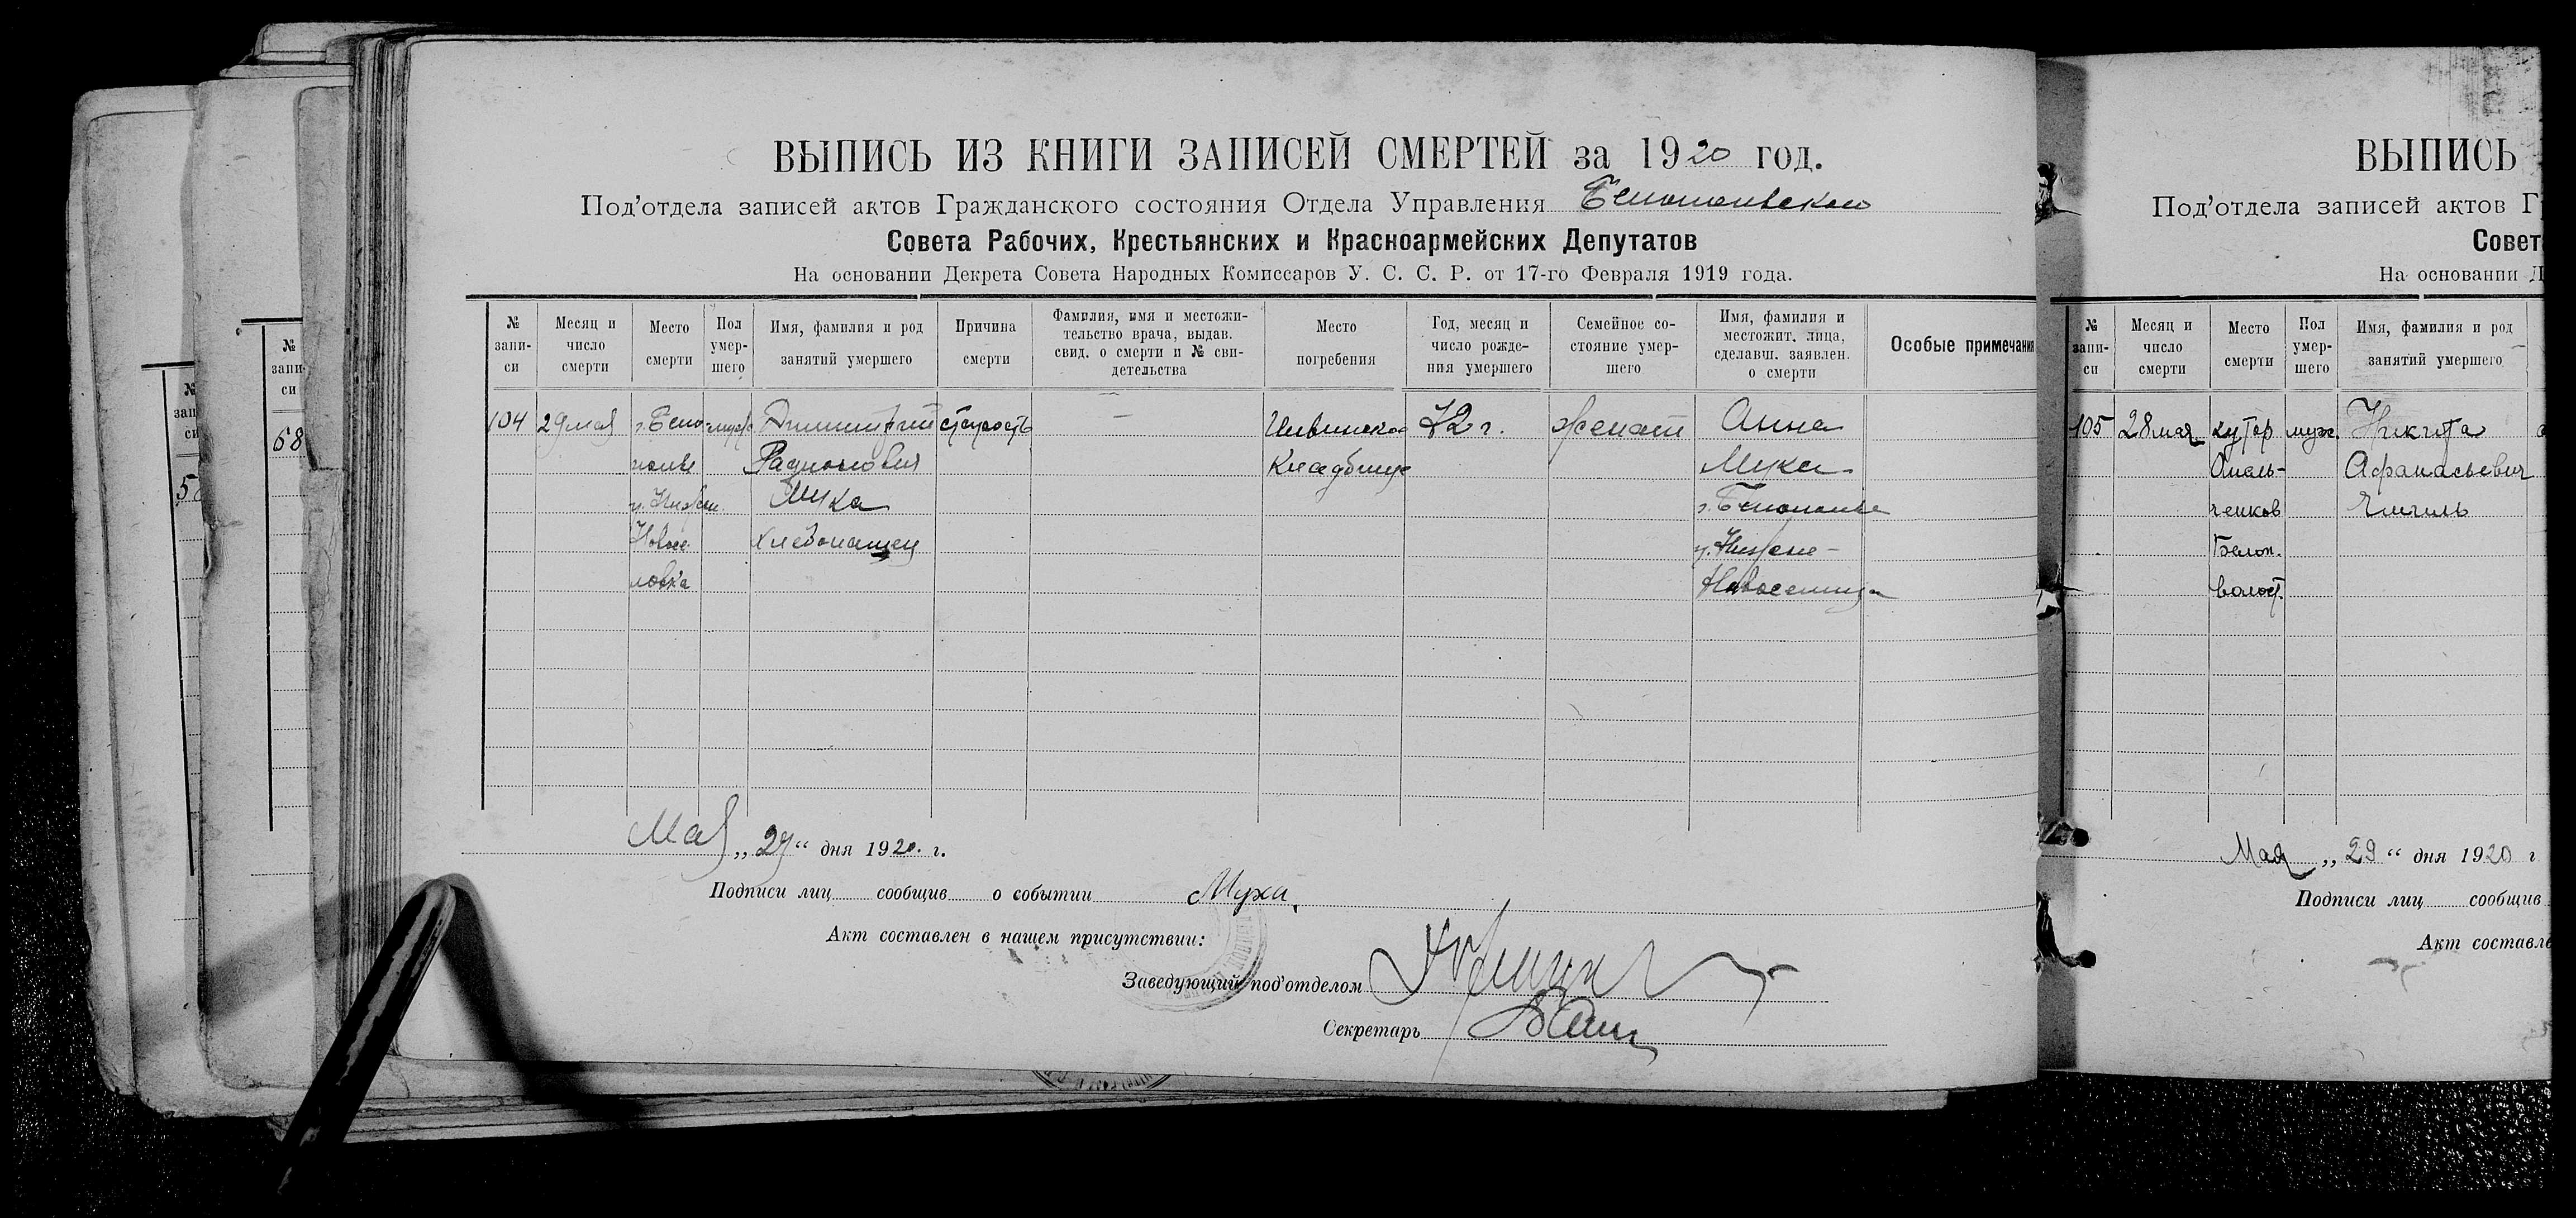 ВЫПИСЬ ИЗ КНИГИ ЗАПИСЕЙ СМЕРТЕЙ за 1920 год.
Под'отдела записей актов Гражданского состояния Отдела Управления
Совета Рабочих, Крестьянских и Красноармейских Депутатов
На основании Декрета Совета Народных Комиссаров У. С. С. Р. от 17-го Февраля 1919 года.
№ запи-си
Месяц и число смерти
Место смерти
Пол умер-шего
Имя, фамилия и род занятий умершего
Причина смерти
Фамилия, имя и местожи-тельство врача, выдав. свид. о смерти и № сви-детельства
Место погребения
Год, месяц и число рожде-ния умершего
Семейное со-стояние умер-шего
Имя, фамилия и местожит. лица, сделавш. заявлен. о смерти
Особые примечания
104 29 мая г. Бело- муж. Димитрий старость — 72 г. женат Анна
полье Радионович Кладбище Муха
Муха г. Белополье
Новосе-
ловка
Мая „ 29 “ дня 1920 г.
Подписи лиц сообщив о событии Муха
Акт составлен в нашем присутствии:
Заведующий под'отделом
Секретарь
ВЫПИСЬ
Под'отдела записей актов Г
Совет
На основании Д
№ запи-си
Месяц и число смерти
Место смерти
Пол умер-шего
Имя, фамилия и род занятий умершего
105 28 мая хутор муж. Никита
Афанасьевич
ченков
Белоп.
волост.
Мая „ 29 “ дня 1920 г
Подписи лиц сообщив
Акт составле
№ запи-си
68
№
зап
си